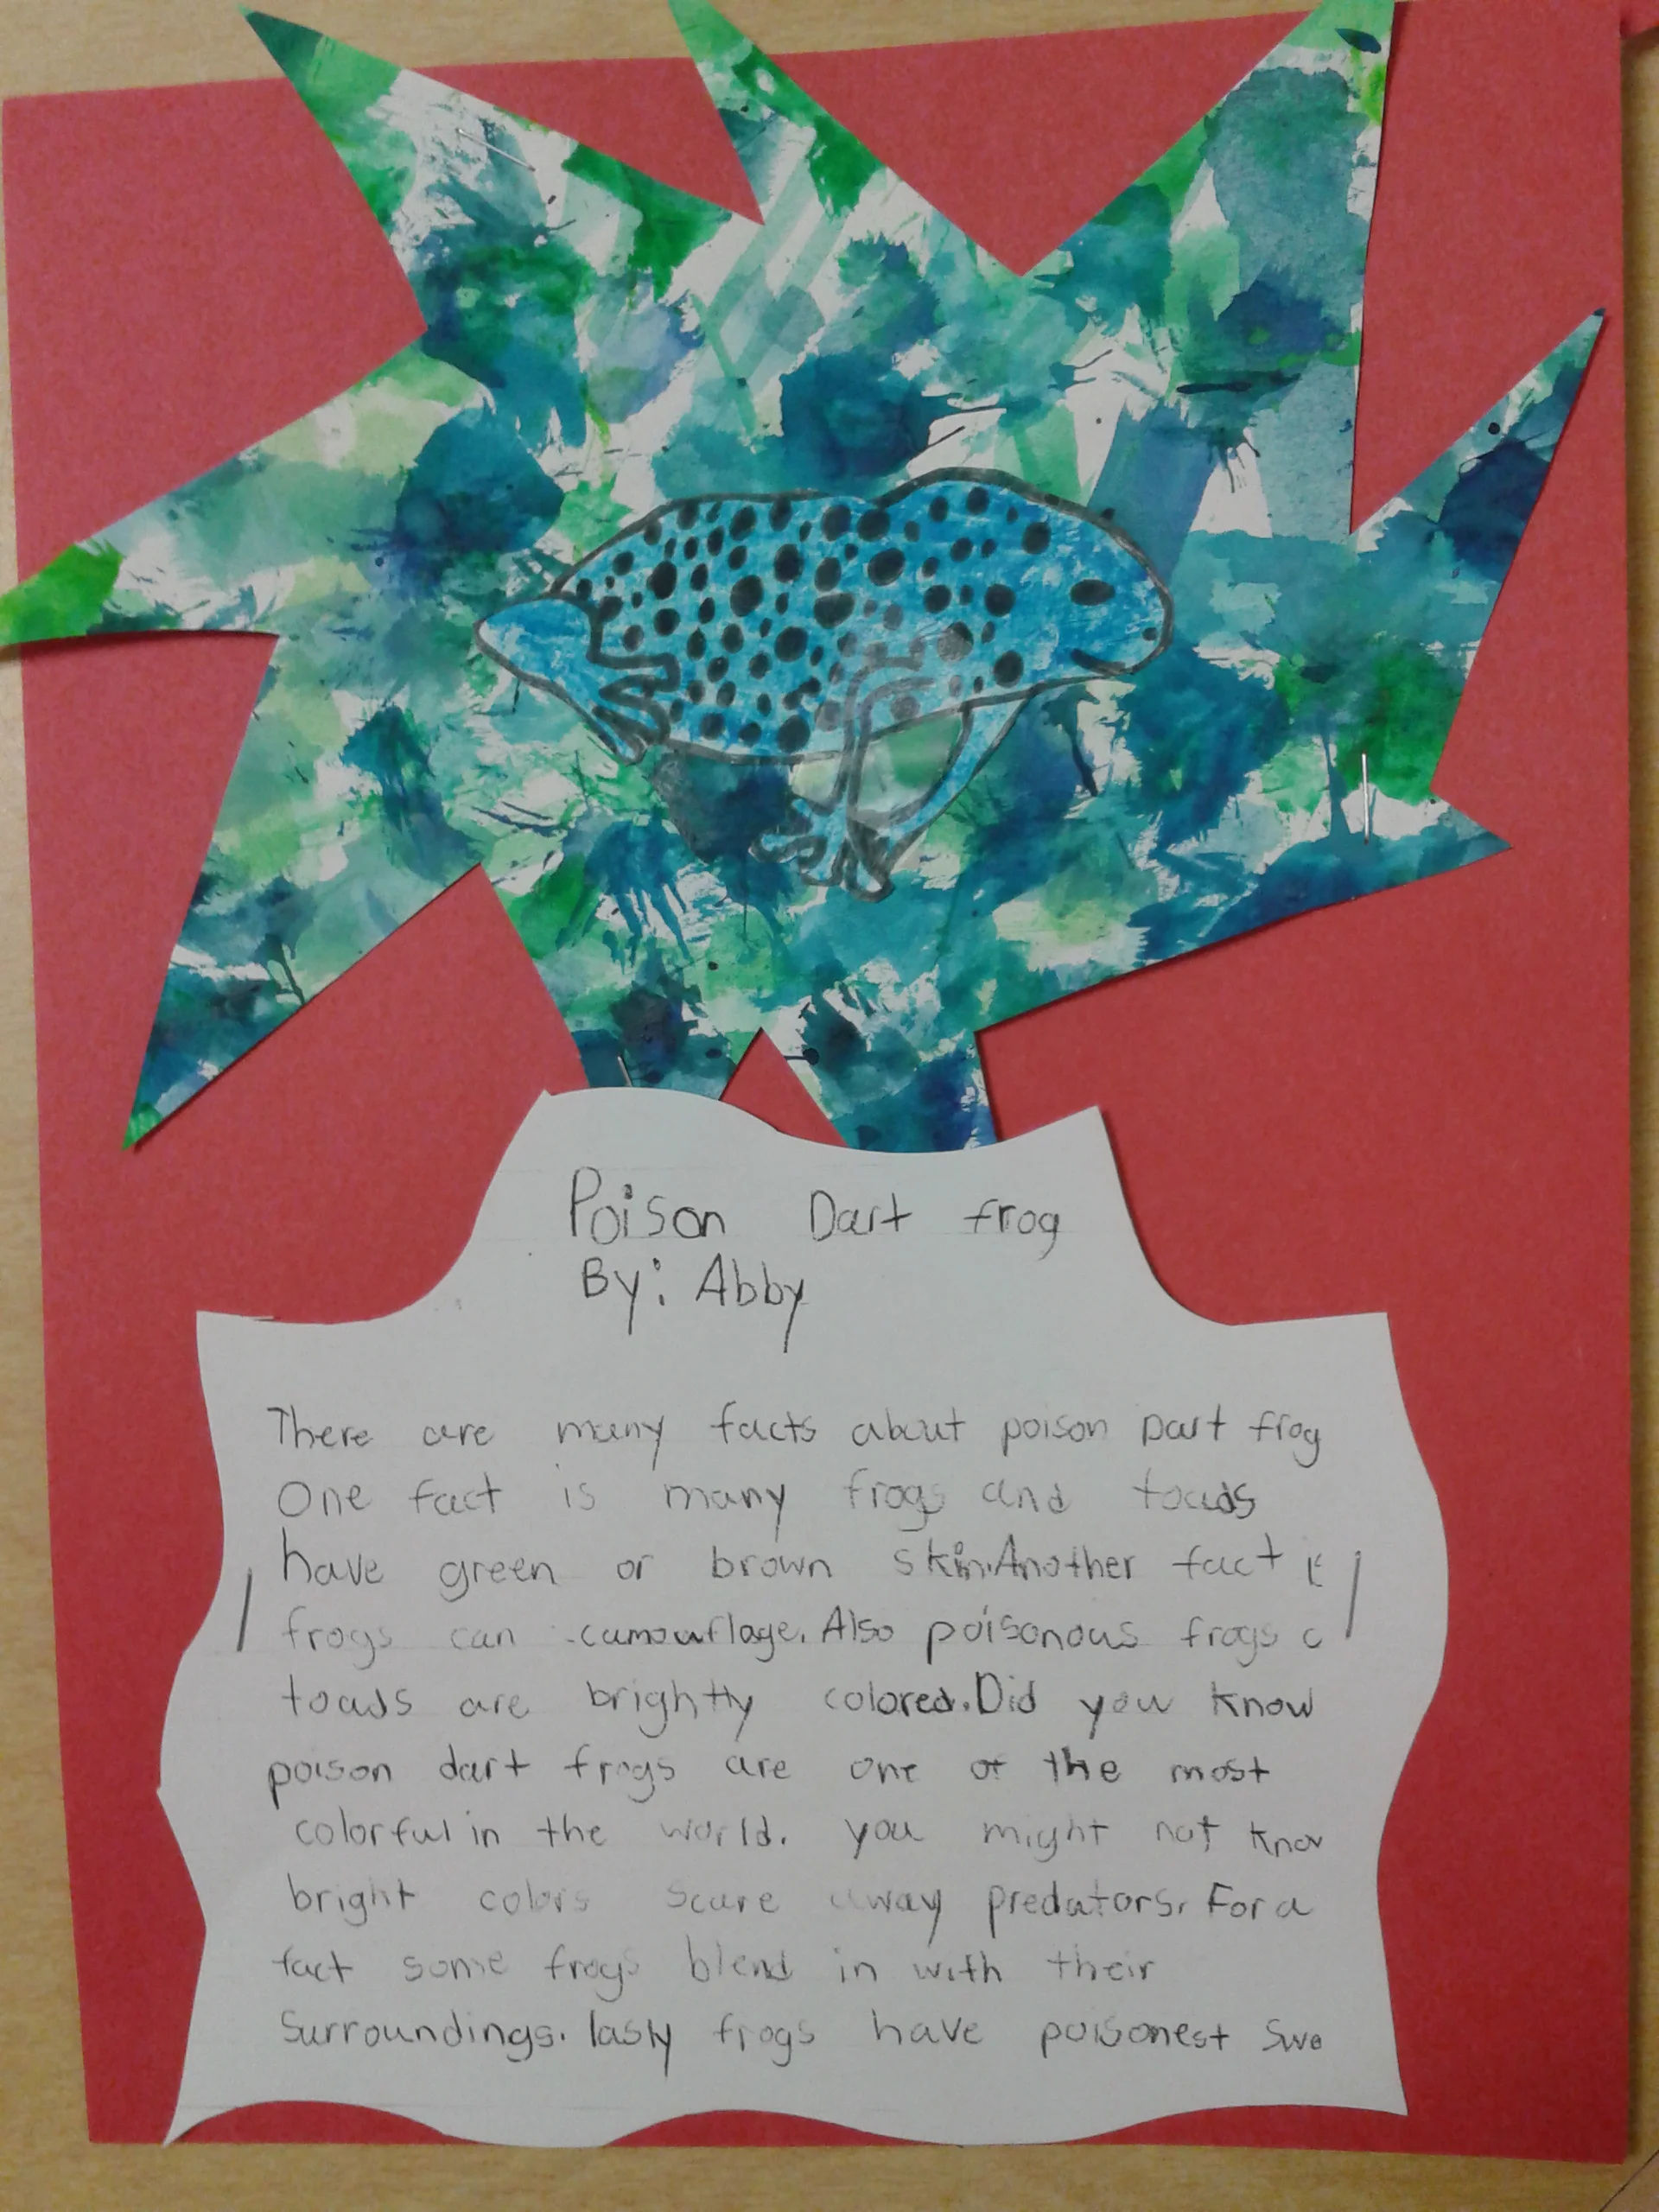 Poison Dart frog
By: Abby
There are many facts about poison Dart frog
One fact is many frogs and toads
have green or brown skin. Another fact
frogs can camouflage. Also poisonous frogs
toads are brightly colored. Did you know
poison dart frogs are one of the most
colorful in the world. you might not know
bright colors scare away predators. For a
fact some frogs blend in with their
Surroundings. lasly frogs have poisonest